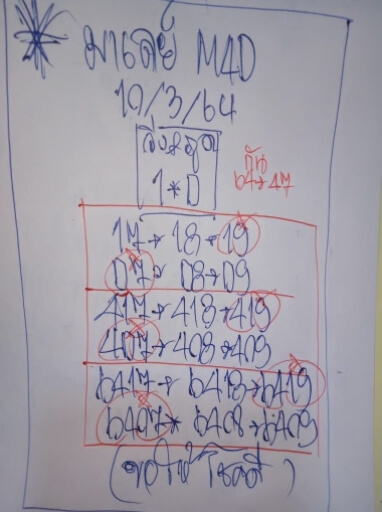 มาเลย์ M4D
10/3/64
1*0
กัน
64→47
17→18→19
07→08→09
417→418→419
407→408→409
6417→6418→6419
6407*6408→6409
(ขอให้โชคดี)